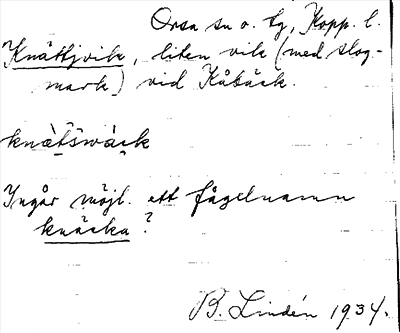 Orsa sn o. tg, Kopp. l.
Knättjvik, liten vik (med slog-
mark) vid Kåbäck.
knätšwàck
Ingår möjl. ett fågelnamn
knäcka?
B. Lindén 1934.